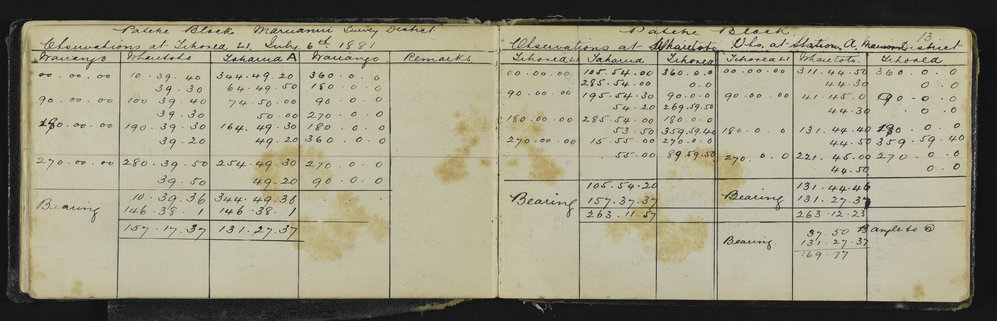 Patche Block Survey District
Observations at L1, July 6th 1881
Wairango Whaitoto A Wairango Remarks
00.00.00 10.39.40 344.49.20 360.0.0
39.30 64.49.50 180.0.0
90.00.00 100.39.40 74.50.00 90.0.0
39.30 50.00 270.0.0
180.00.00 190.39.30 164.49.30 180.0.0
39.20 49.20 360.0.0
270.00.00 280.39.50 254.49.30 270.0.0
39.50 49.20 90.0.0
10.39.36 344.49.36
Bearing 146.38.1 146.38.1
157.17.37 131.27.37
13
Patche Block
Observations at Whaitoto Obs. at Station A District
L1 L1 Whaitoto
00.00.00 105.54.00 360.0.0 00.00.00 311.44.50 360.0.0
285.54.00 0.0 44.30 0.0
90.00.00 195.54.30 90.0.0 90.00.00 41.45.0 90.0.0
54.20 269.59.50 44.30 0.0
180.00.00 285.54.00 180.0.0
53.50 359.59.40 180.0.0 131.44.40 180.0.0
270.00.00 15.55.00 270.0.0 44.50 359.59.40
55.00 89.59.50 270.0.0 221.45.00 270.0.0
44.50 0.0
105.54.20 131.44.46
Bearing 157.37.37 Bearing 131.27.37
263.11.57 263.12.23
37.50 B angle to
Bearing 131.27.37
169.17